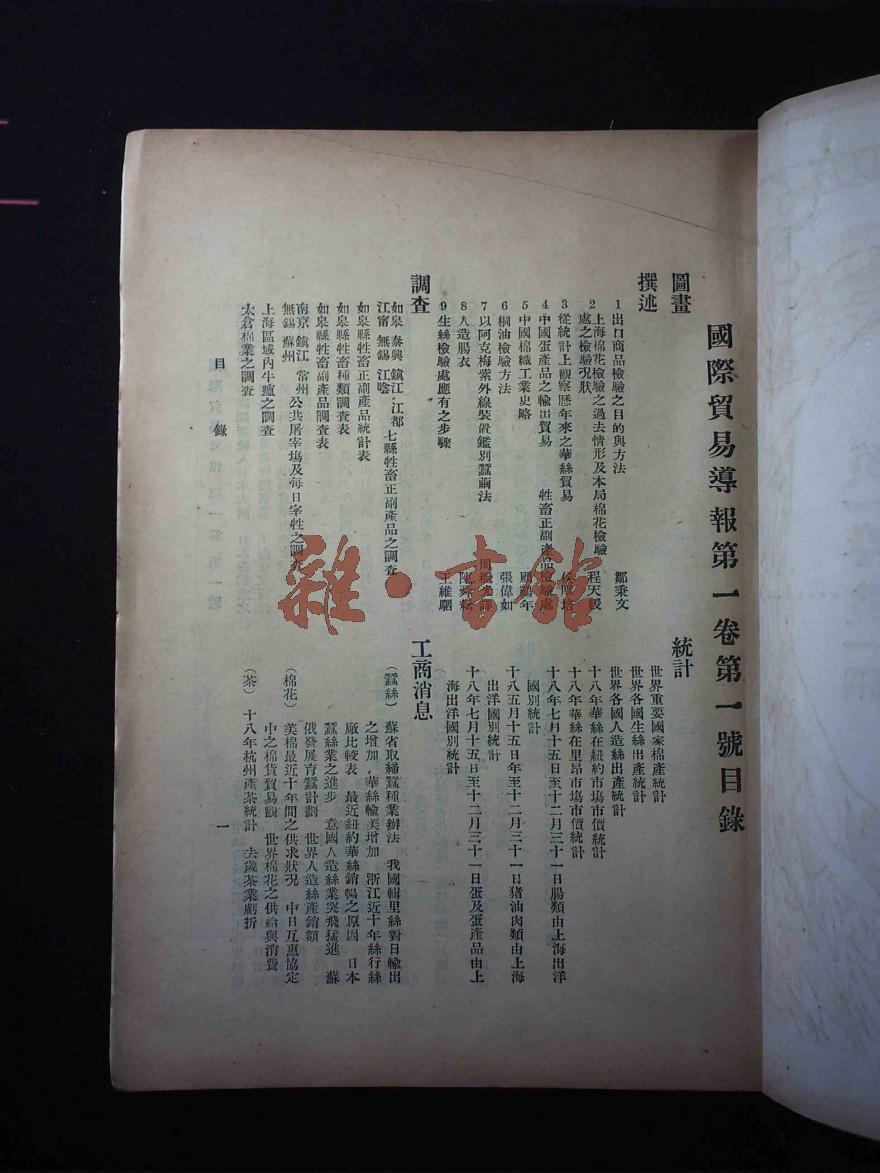 國際貿易導報第一卷第一號目錄
圖畫
撰述
1 出口商品檢驗之目的與方法 鄒秉文
2 上海棉花檢驗之過去情形及本局棉花檢驗
處之檢驗況狀 程天綬
3 從統計上觀察歷年來之華絲貿易
4 中國蛋產品之輸出貿易 牲畜正副產品檢驗處
5 中國棉織工業史略 年
6 桐油檢驗方法 張偉如
7 以阿克梅紫外線裝置鑑別蠶繭法
8 人造腸衣
9 生絲檢驗處應有之步驟 王維駰
調查
如皋 泰興 鎮江 江都 七縣牲畜正副產品之調查
江甯 無錫 江陰
如皋縣牲畜正副產品統計表
如皋縣牲畜種類調查表
如皋縣牲畜副產品調查表
南京 鎮江 常州 公共屠宰塲及每日宰牲之調查
無錫 蘇州
上海區域內牛瘟之調查
太倉棉業之調查
統計
世界重要國家棉產統計
世界各國生絲出產統計
世界各國人造絲出產統計
十八年華絲在紐約市塲市價統計
十八年華絲在里昂市塲市價統計
十八年七月十五日至十二月三十一日腸類由上海出洋
國別統計
十八五月十五日年至十二月三十一日猪油肉類由上海
出洋國別統計
十八年七月十五日至十二月三十一日蛋及蛋產品由上
海出洋國別統計
工商消息
（蠶絲） 蘇省取締蠶種業辦法 我國輯里絲對日輸出
之增加 華絲輸美增加 浙江近十年絲行絲
廠比較表 最近紐約華絲銷暢之原因 日本
蠶絲業之進步 意國人造絲業突飛猛進 蘇
俄發展育蠶計劃 世界人造絲產銷額
（棉花） 美棉最近十年間之供求狀況 中日互惠協定
中之棉貨貿易觀 世界棉花之供給與消費
（茶） 十八年杭州產茶統計 去歲茶業虧折
目錄
一
雜·書館